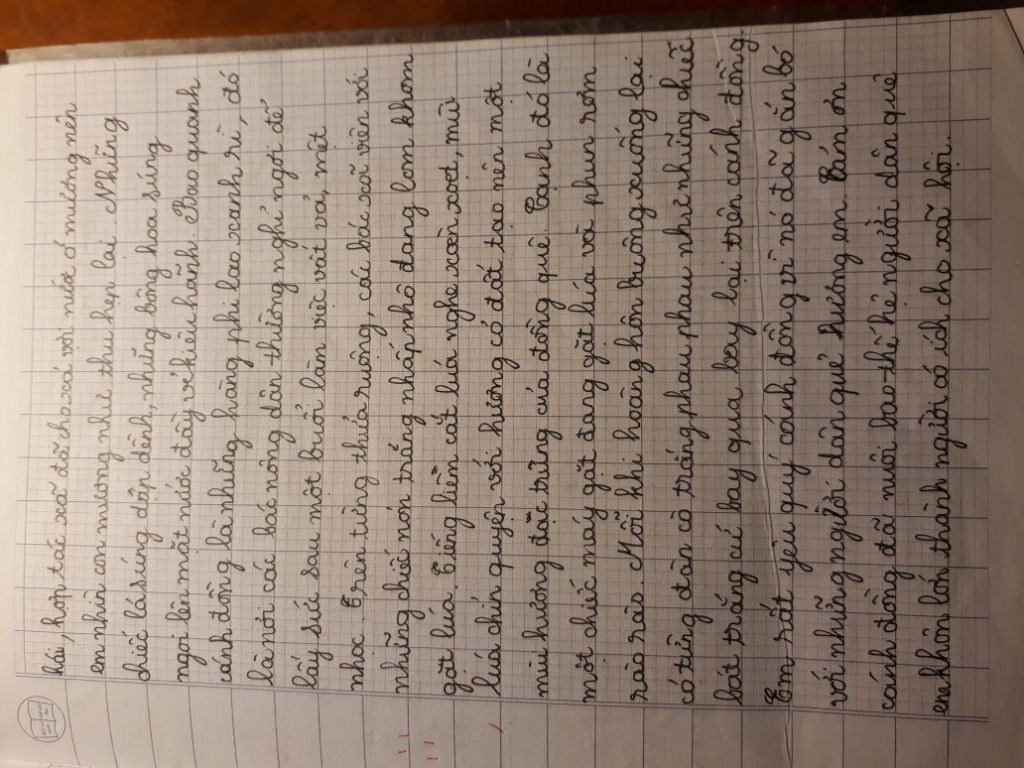 hái, hợp tác xã đã cho xả với nút ở mương nên
em nhìn con mương như thu hẹp lại. Những
chiếc lá súng dập dềnh, những bông hoa súng
ngoi lên mặt nước đầy vẻ kiêu hãnh. Bao quanh
cánh đồng là những hàng phi lao xanh rì, đó
là nơi các bác nông dân thường nghỉ ngơi để
lấy sức sau một buổi làm việc vất vả, mệt
nhọc. Trên từng thửa ruộng, các bác xã viên với
những chiếc nón trắng nhấp nhô đang lom khom
gặt lúa. Tiếng liềm cắt lúa nghe xoèn xoẹt, mùi
lúa chín quyện với hương cỏ đất tạo nên một
mùi hương đặc trưng của đồng quê. Cạnh đó là
một chiếc máy gặt đang gặt lúa và phun rơm
rào rào. Mỗi khi hoàng hôn buông xuống lại
có từng đàn cò trắng phau phau như những chiếc
bát trắng cứ bay qua bay lại trên cánh đồng.
Em rất yêu quý cánh đồng vì nó đã gắn bó
với những người dân quê hương em. Cám ơn
cánh đồng đã nuôi bao thế hệ người dân quê
em khôn lớn thành người có ích cho xã hội.